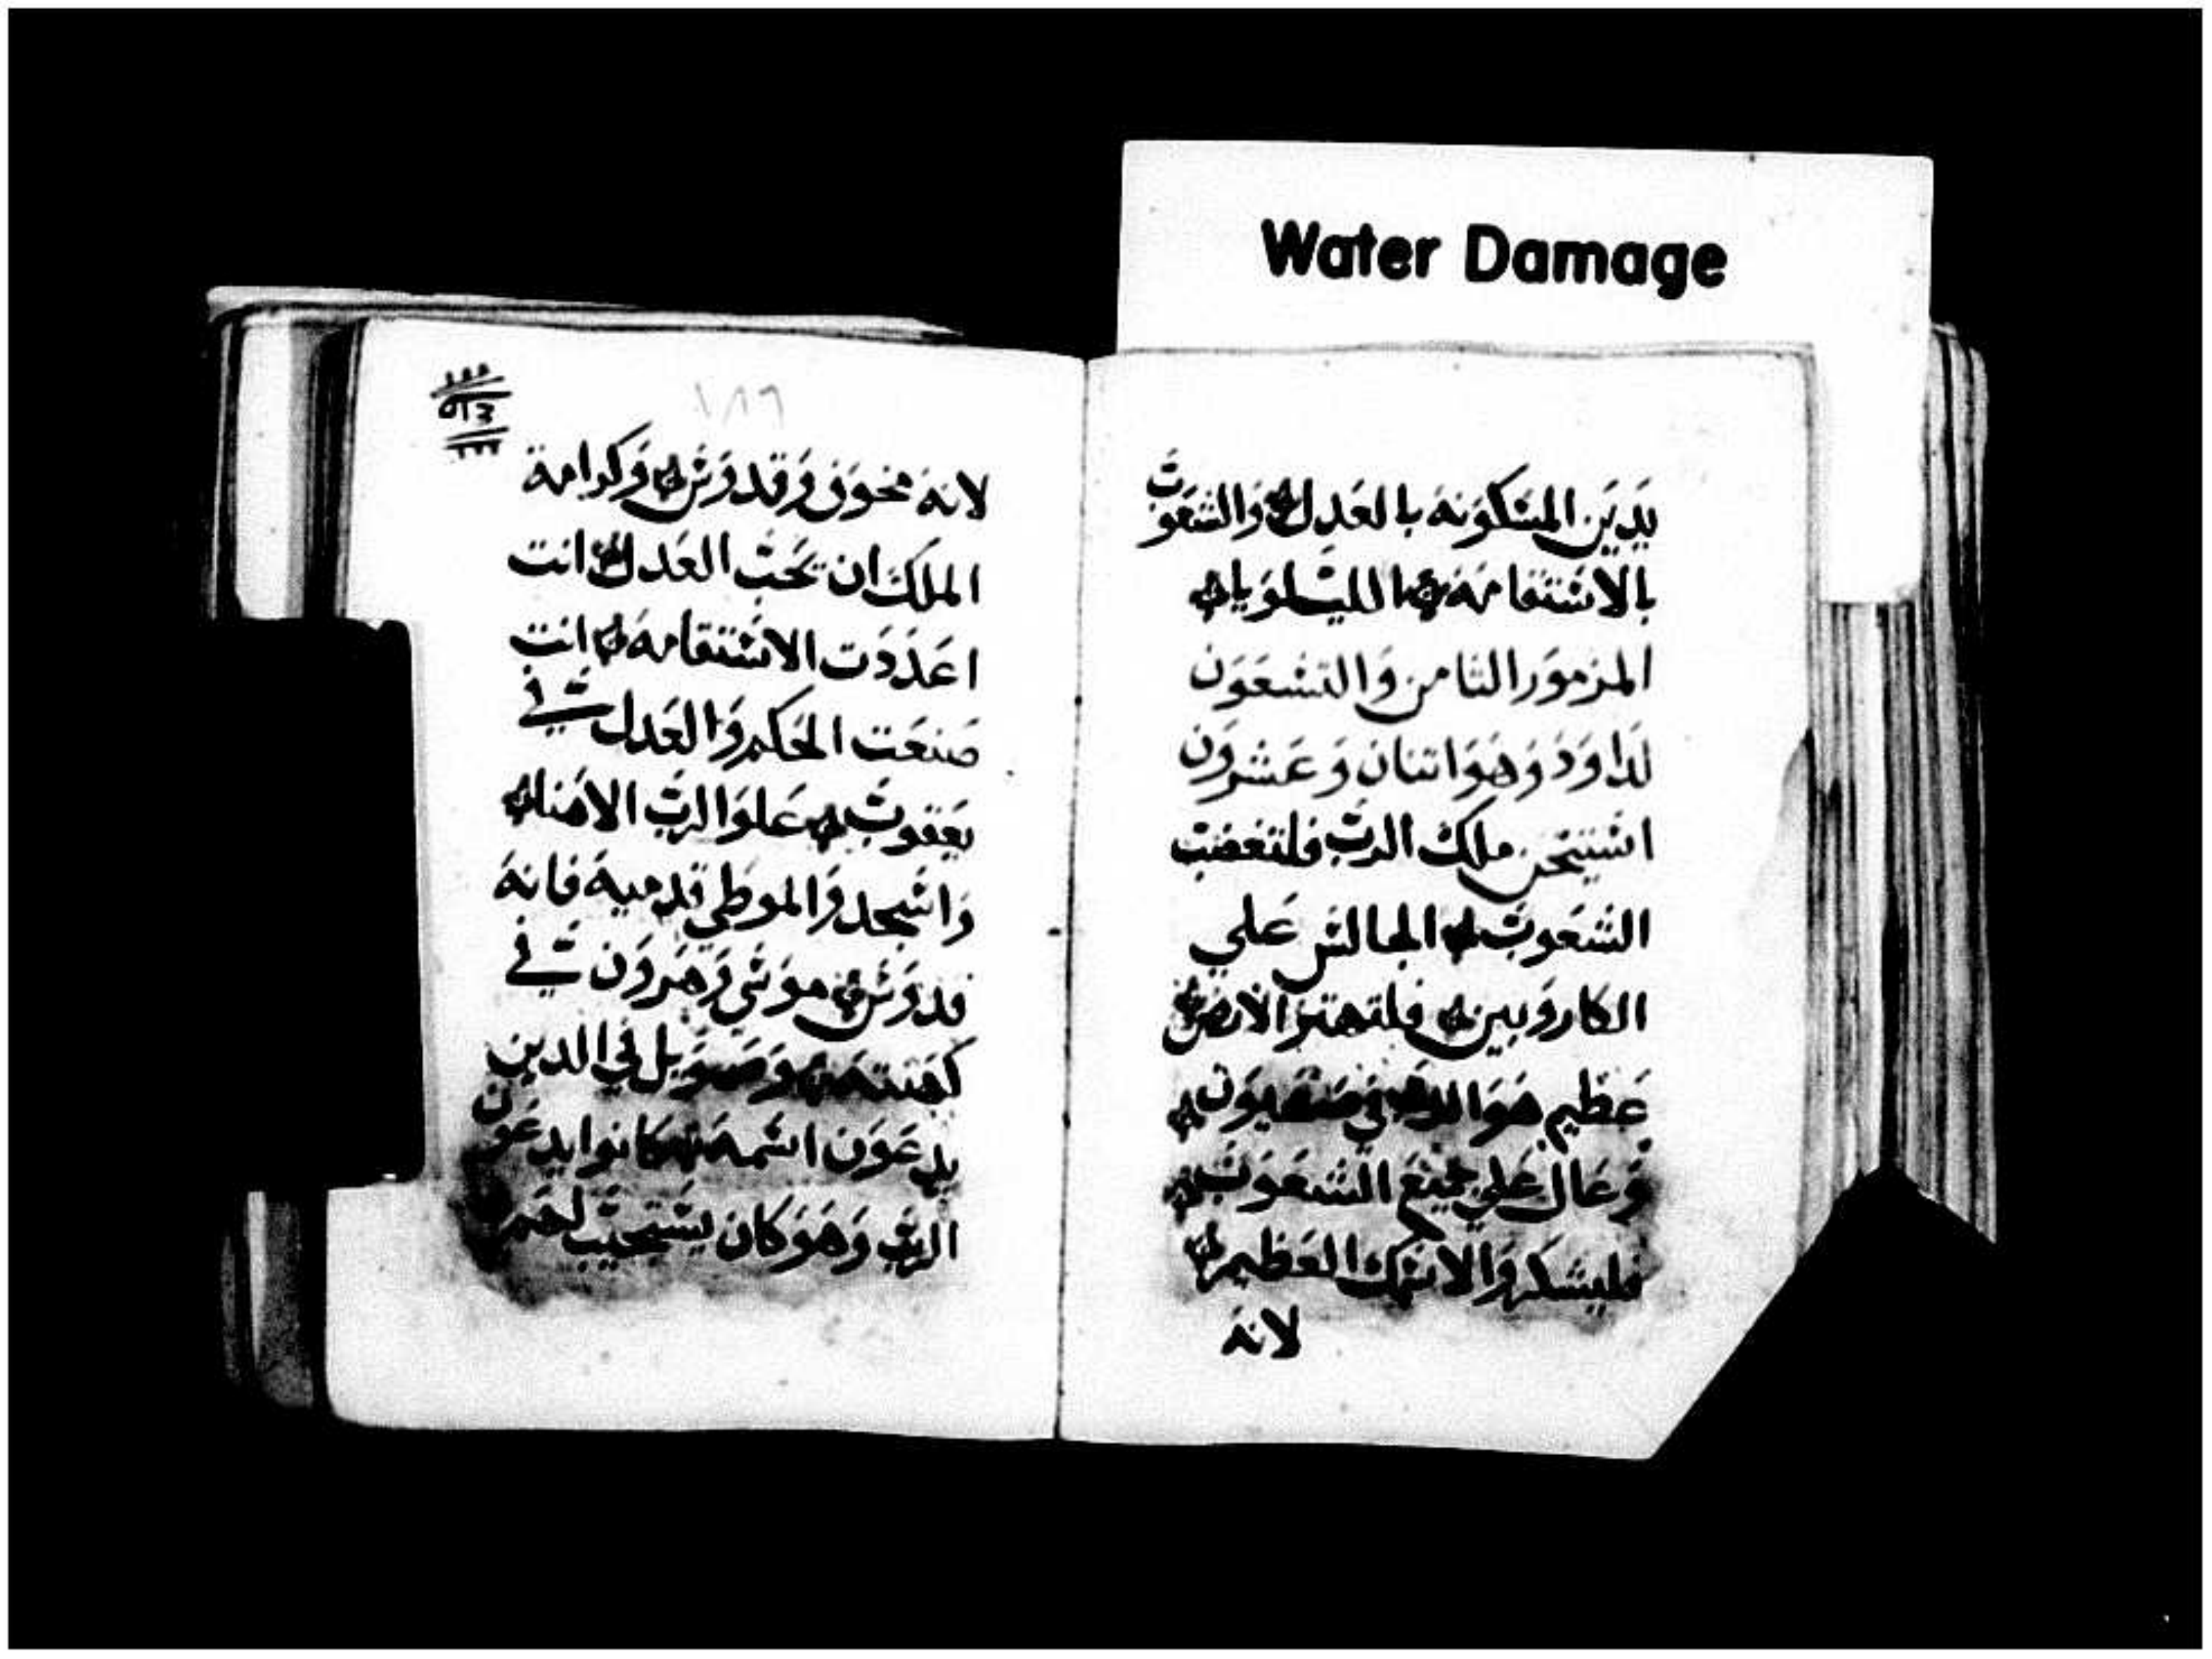 Water Damage
يدين المسكونه بالعدل والشعوب
بالاستقامة الليلويا
المزمور الثامن والتسعون
لداود وهو اتنان وعشرون
اشتيحن ملك الرب فلتغضب
الشعوب الجالس علي
الكاروبين فلتهتز الارض
عظيم هو الرب في صهيون
وعال علي جميع الشعوب
فليشكروا لاسمك العظيم
لانه
١٨٦
لانه مخوف وقدوس وكرامة
الملك ان تحب العدل انت
اعددت الاستقامه انت
صنعت الحكم والعدل في
يعقوب علوا الرب الاهنا
واسجدوا لموطي قدميه فانه
قدوس موسي وهرون في
كهنته وصمويل في الدين
يدعون اسمه كانوا يدعون
الرب وهو كان يستجيب لهم